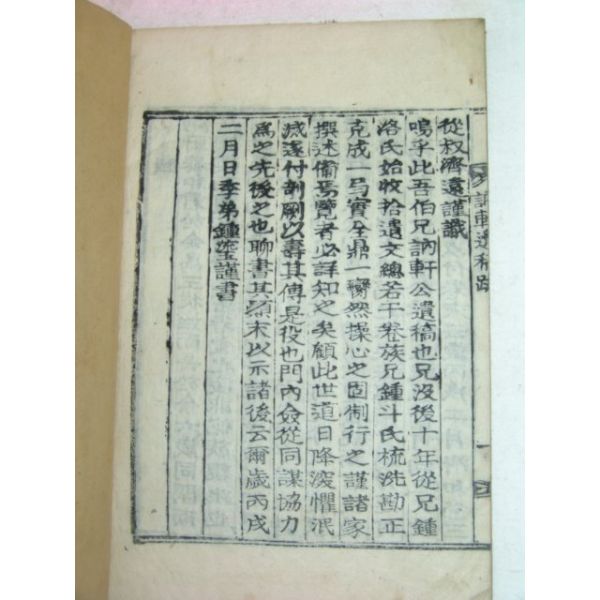 訥軒遺稿跋
從叔濟遠謹識
嗚乎此吾伯兄訥軒公遺稿也兄沒後十年從兄鍾
洛氏始收拾遺文總若干卷族兄鍾斗氏梳洗勘正
克成一烏實全鼎一臠然操心之固制行之謹諸家
撰述備焉覽者必詳知之矣顧此世道日降浚懼泯
滅遂付剞劂以壽其傳是役也門內僉從同謀協力
爲之先後之也聊書其顚末以示諸後云爾歲丙戌
二月日季弟鍾瀅謹書